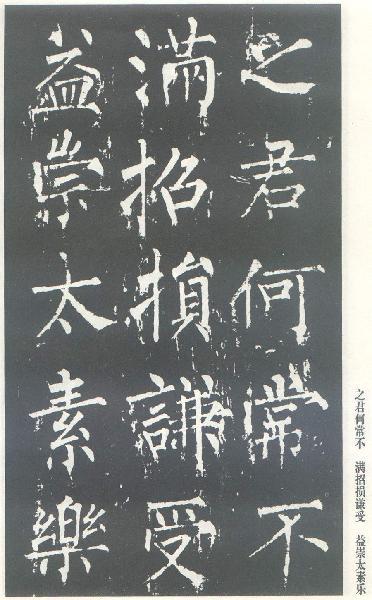 之君何常不
滿招損謙受
益崇太素樂
之君何常不　满招损谦受　益崇太素乐